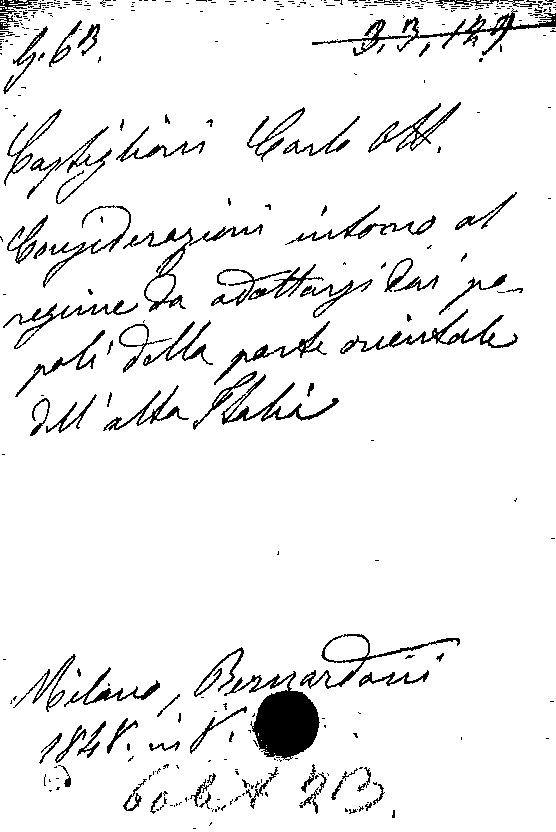 G. 63. 3.3.129.
Castiglioni Carlo Ott.
Considerazioni intorno al
regime da adottarsi dai po-
poli della parte orientale
dell'alta Italia
Milano, Bernardoni
1848. in 8.
2B.